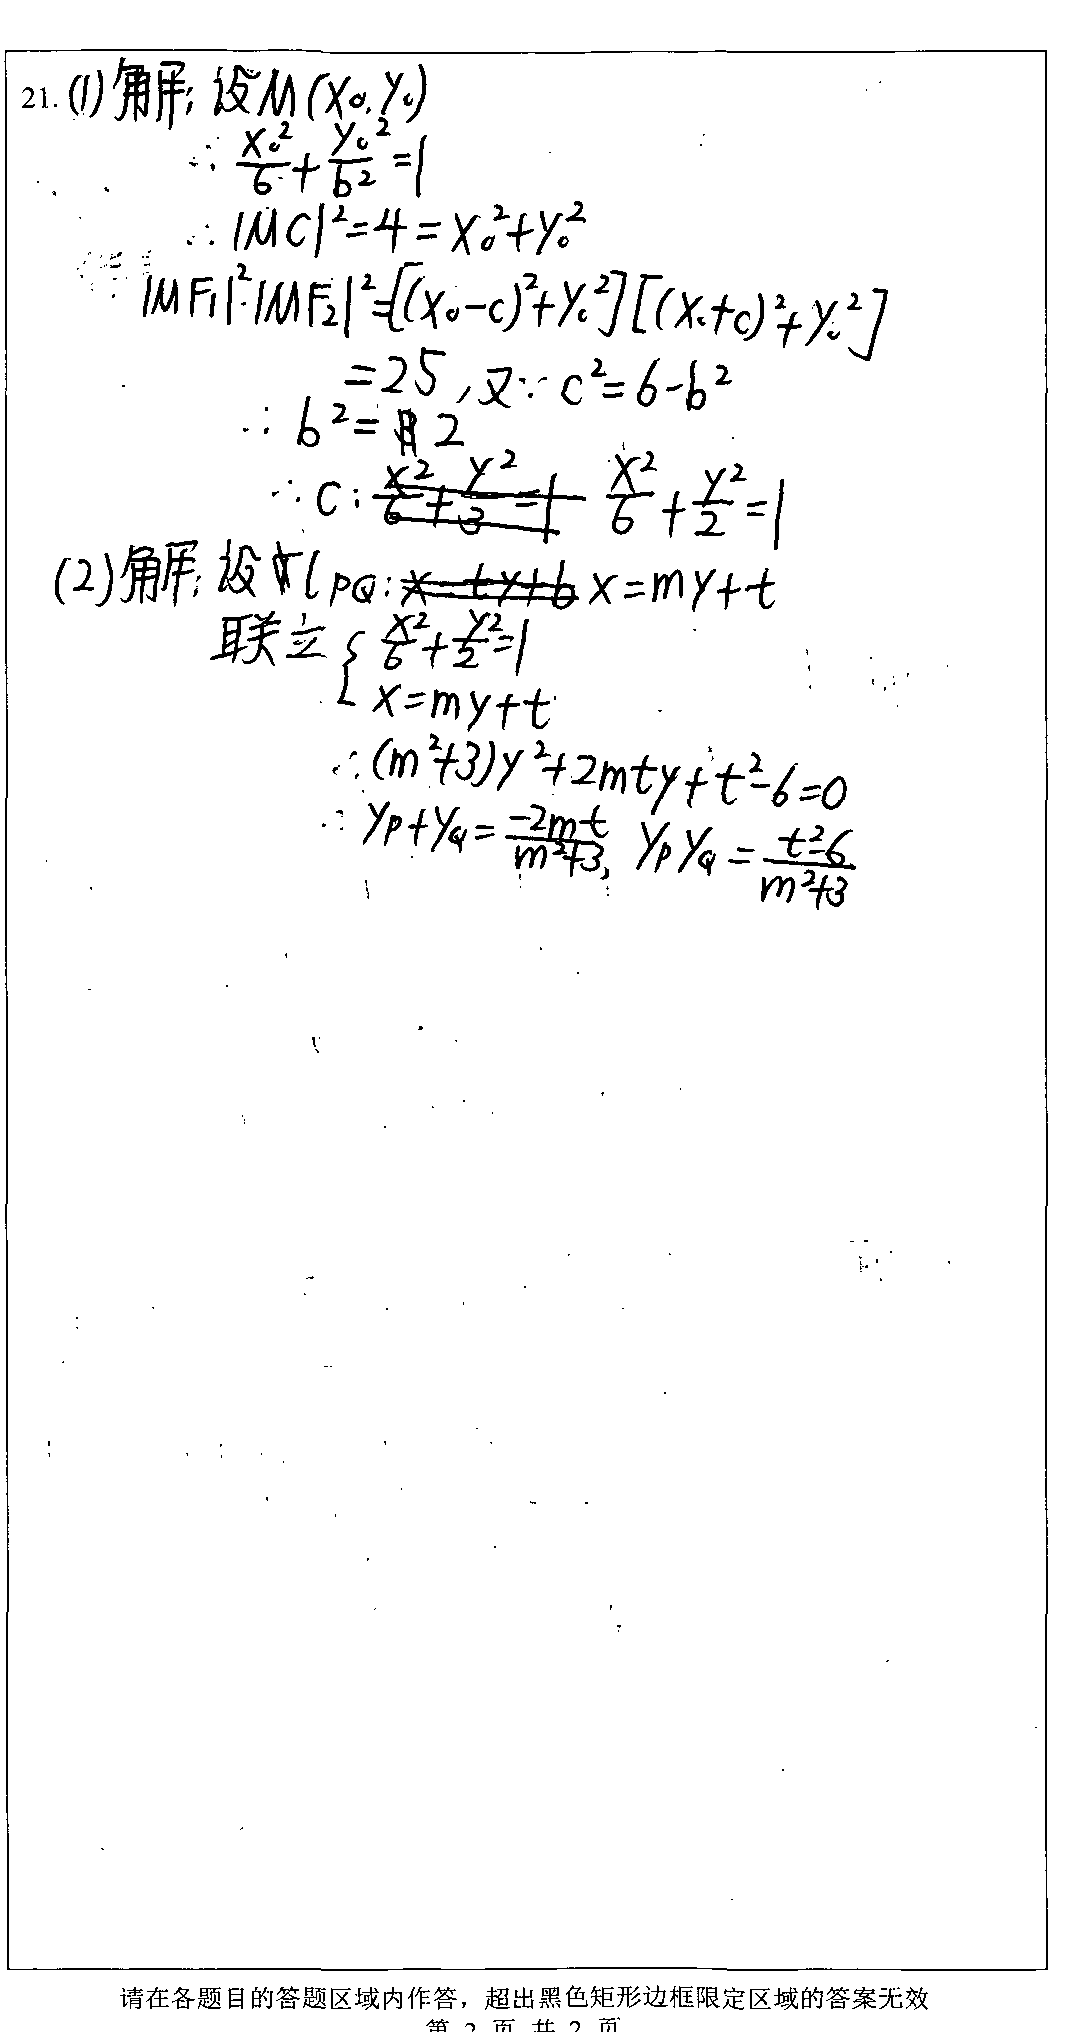 21. (1) 解: 设M(x₀, y₀)
∴ x₀²/6 + y₀²/b² = 1
∴ |MC|² = 4 = x₀² + y₀²
|MF₁|²·|MF₂|² = [(x₀-c)² + y₀²][(x₀+c)² + y₀²]
= 25, 又∵ c² = 6-b²
∴ b² = 2
∴ C: x²/6 + y²/3 = 1 x²/6 + y²/2 = 1
(2) 解: 设 l PQ: x = ty+b x = my+t
联立 { x²/6 + y²/2 = 1
x = my+t
∴ (m²+3)y² + 2mty + t²-6 = 0
∴ yP + yQ = -2mt/m²+3, yP yQ = t²-6/m²+3
请在各题目的答题区域内作答，超出黑色矩形边框限定区域的答案无效
第 2 页 共 2 页